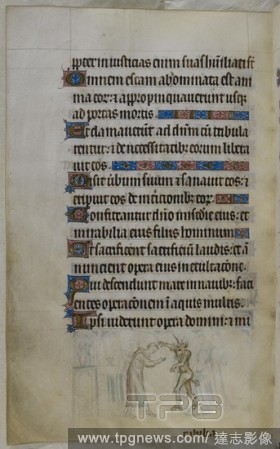 ppter iniusticias enim suas hūiliati sᷤ
Omnem escam abominata est ani
ma eor: & appropinquauerunt usq
ad portas mortis
Et clamauerūt ad dnm cū tribula
rentur: & de necessitatibz eorum libera
uit eos
Misit ūbum suum & sanauit eos: &
eripuit eos de inticionibz eor:
Confiteantur dno misdie eius: et
mirabilia eius filiis hominum
Et sacrificent sacrificiū laudis: et an
nuncient opera eius in exultacōne
Qui descendunt mare in nauibz: faci
entes operacōnem ī aquis multis
Ipsi uiderunt opera domini: & mi
TPG
www.tpgnews.com/達志影像